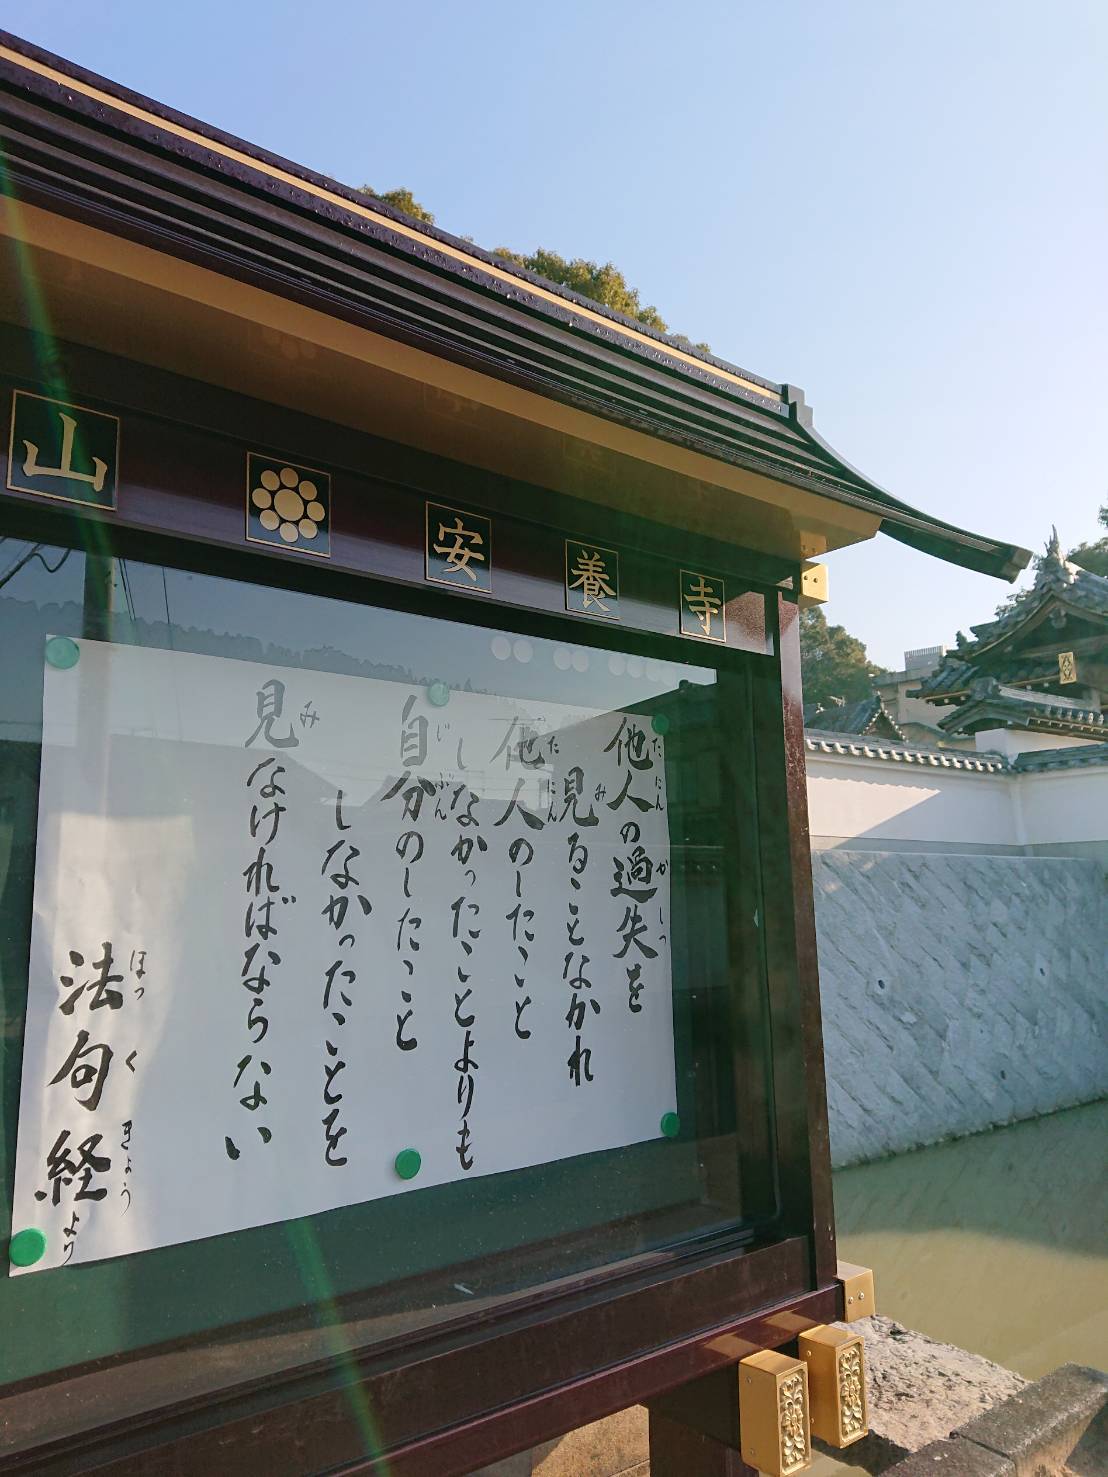 山 安養寺
他人の過失を
たにん かしつ
見ることなかれ
み
他人のしたこと
たにん
しなかったことよりも
自分のしたこと
じぶん
しなかったことを
見なければならない
み
法句経より
ほっくきょう